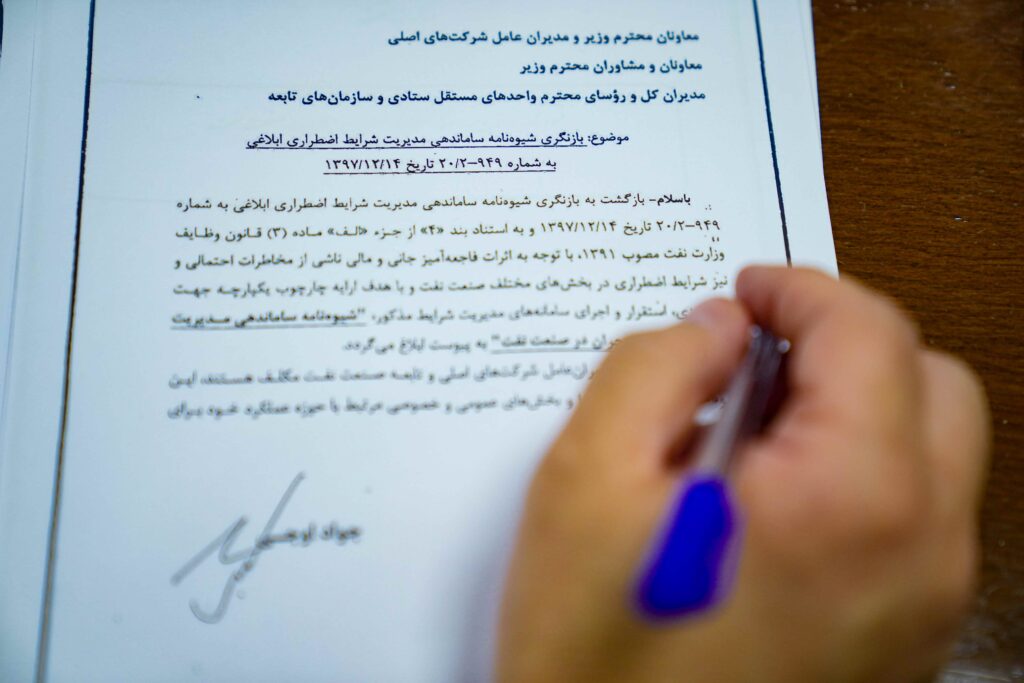 معاونان محترم وزیر و مدیران عامل شرکت‌های اصلی
معاونان و مشاوران محترم وزیر
مدیران کل و رؤسای محترم واحدهای مستقل ستادی و سازمان‌های تابعه
موضوع: بازنگری شیوه‌نامه ساماندهی مدیریت شرایط اضطراری ابلاغی
به شماره ۹۴۹-۲۰/۲ تاریخ ۱۳۹۷/۱۲/۱۴
باسلام- بازگشت به بازنگری شیوه‌نامه ساماندهی مدیریت شرایط اضطراری ابلاغی به شماره
۹۴۹-۲۰/۲ تاریخ ۱۳۹۷/۱۲/۱۴ و به استناد بند «۴» از جزء «الف» ماده (۳) قانون وظایف
وزارت نفت مصوب ۱۳۹۱، با توجه به اثرات فاجعه‌آمیز جانی و مالی ناشی از مخاطرات احتمالی و
نیز شرایط اضطراری در بخش‌های مختلف صنعت نفت و با هدف ارایه چارچوب یکپارچه جهت
استقرار و اجرای سامانه‌های مدیریت شرایط مذکور، "شیوه‌نامه ساماندهی مدیریت
در صنعت نفت" به پیوست ابلاغ می‌گردد.
شرکت‌های اصلی و تابعه صنعت نفت مکلف هستند، این
و بخش‌های عمومی و خصوصی مرتبط با حوزه عملکرد خود برای
جواد اوجی